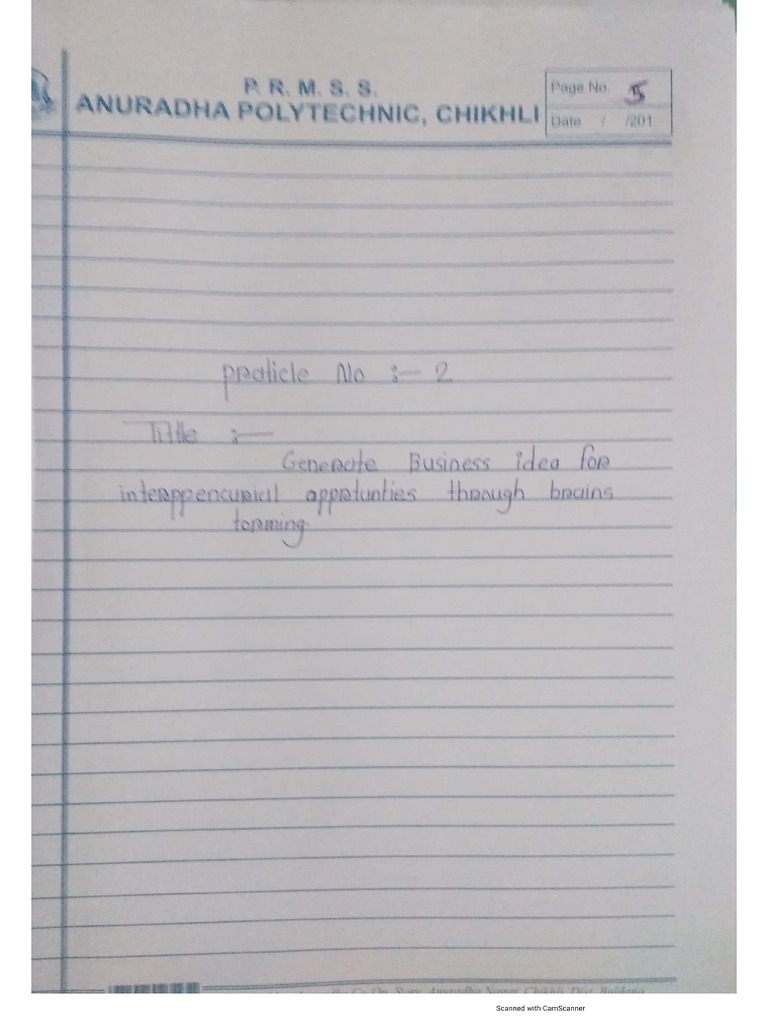 P. R. M. S. S.
ANURADHA POLYTECHNIC, CHIKHLI
Page No. 5
Date / /201
praticle No :- 2
Title :-
Generate Business idea for
interppencurial appratunties through brains
torming.
Anuradha Nagar, Chikhli, Dist. Buldana
Scanned with CamScanner